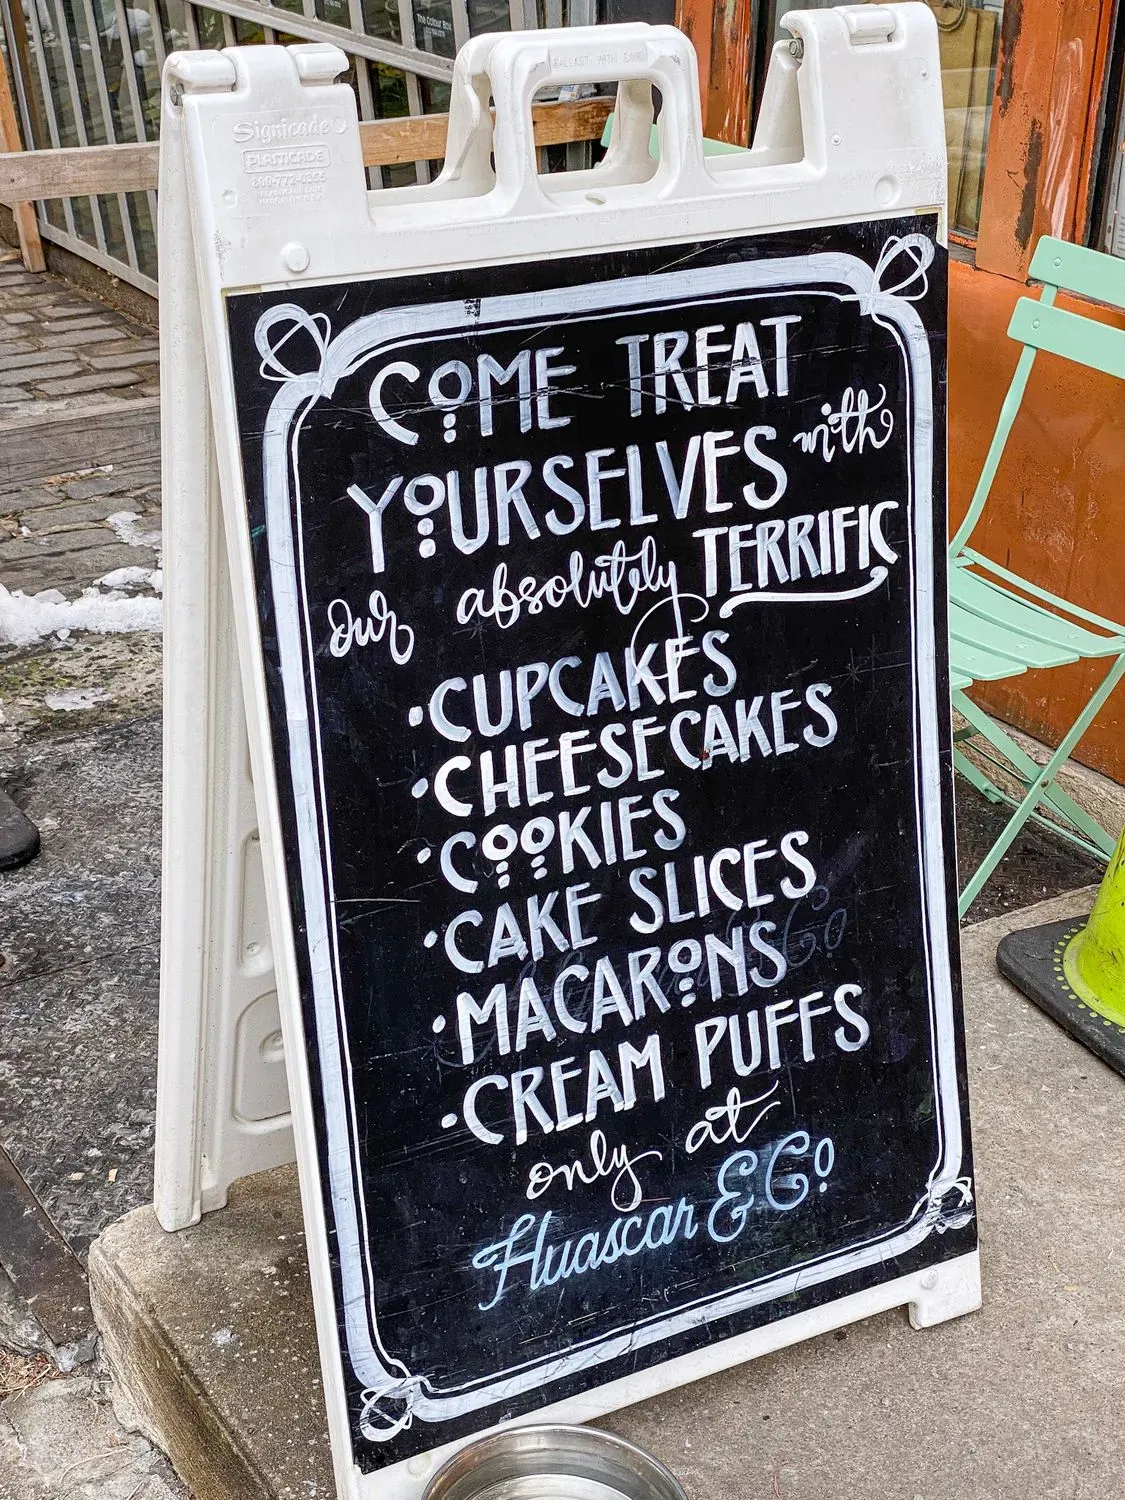 The Colour Box
BALLAST WITH SAND
Signicade
PLASTICADE
800-772-0355
COME TREAT
YOURSELVES with
our absolutely TERRIFIC
• CUPCAKES
• CHEESECAKES
• COOKIES
• CAKE SLICES
• MACARONS
• CREAM PUFFS
only at
Huascar & Co